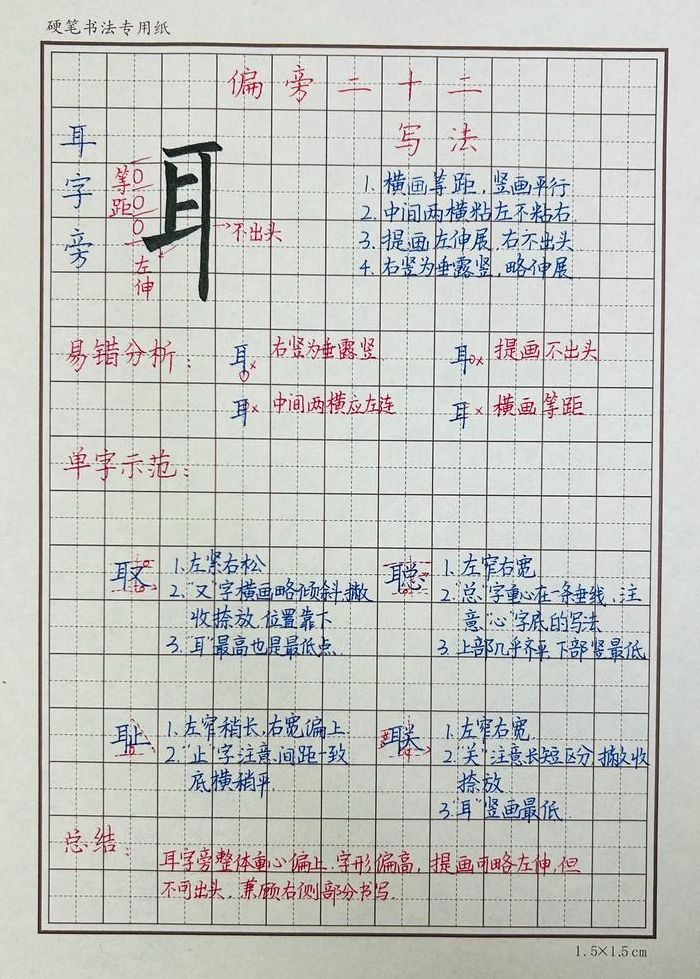 硬笔书法专用纸
偏旁二十二
耳字旁
等距
耳
不出头
左伸
写法
1. 横画等距，竖画平行
2. 中间两横粘左不粘右
3. 提画左伸展，右不出头
4. 右竖为垂露竖，略伸展
易错分析：
耳× 右竖为垂露竖
耳× 提画不出头
耳× 中间两横应左连
耳× 横画等距
单字示范：
取
1. 左紧右松
2. "又"字横画略倾斜，撇
收捺放，位置靠下
3. "耳"最高也是最低点
聪
1. 左窄右宽
2. "总"字重心在一条垂线，注
意"心"字底的写法
3. 上部几乎齐平，下部竖最低
耻
1. 左窄稍长，右宽偏上
2. "止"字注意间距一致
底横稍平
联
1. 左窄右宽
2. "关"注意长短区分，撇收
捺放
3. "耳"竖画最低
总结：
耳字旁整体重心偏上，字形偏高，提画可略左伸，但
不可出头，兼顾右侧部分书写.
1.5×1.5cm